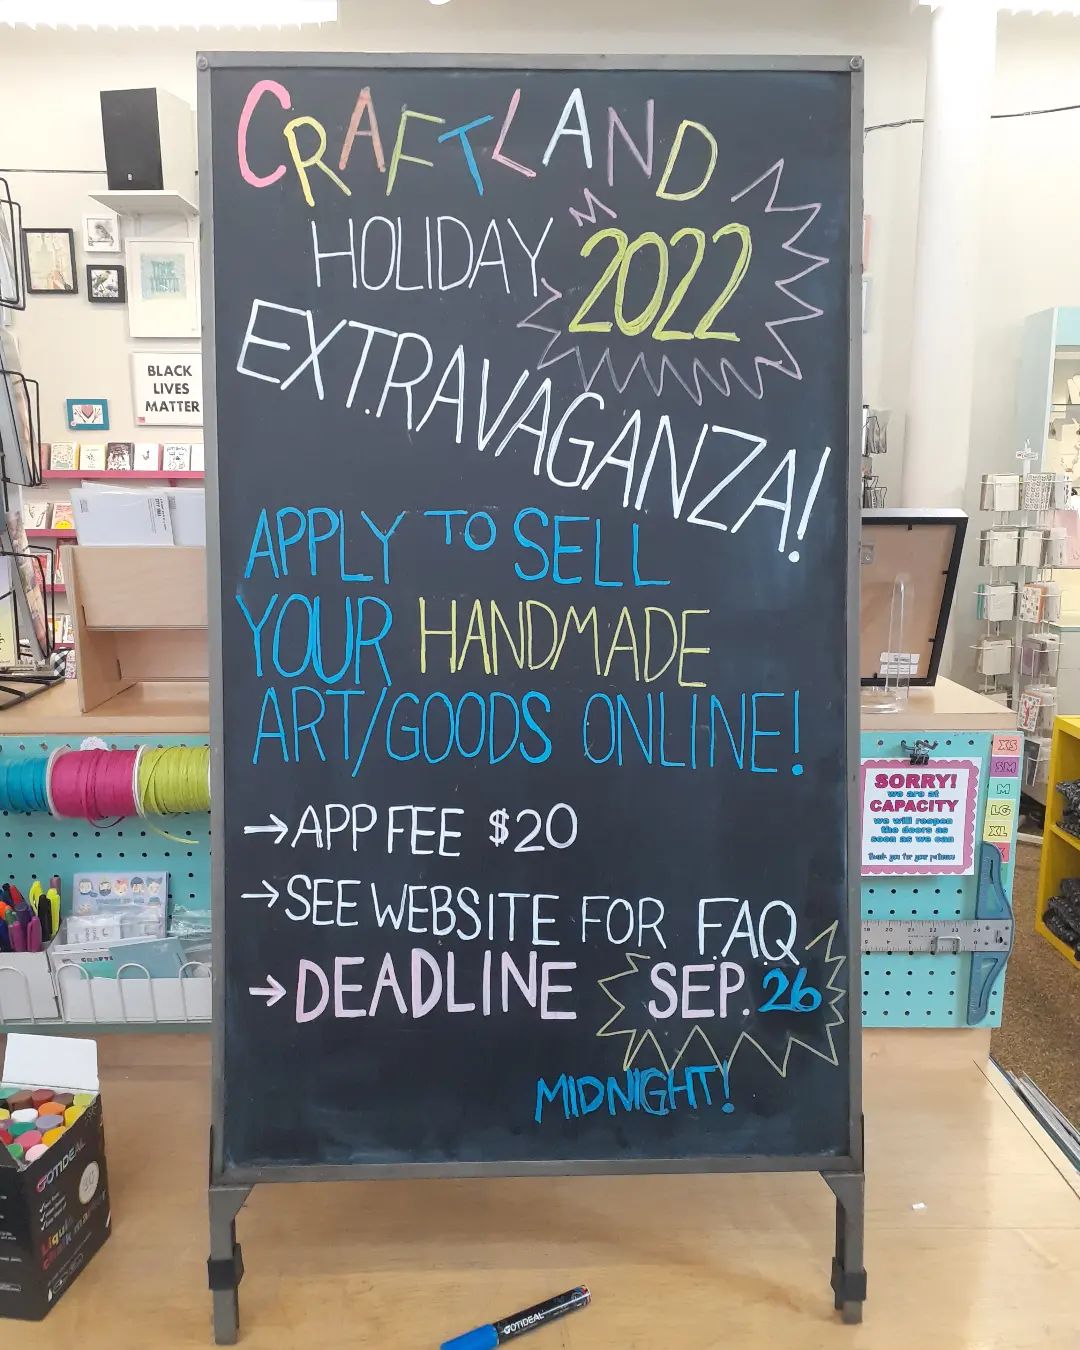 CRAFTLAND
HOLIDAY 2022
EXTRAVAGANZA!
APPLY TO SELL
YOUR HANDMADE
ART/GOODS ONLINE!
→APP FEE $20
→SEE WEBSITE FOR FAQ
→DEADLINE SEP. 26
MIDNIGHT!
BLACK
LIVES
MATTER
SORRY!
we are at
CAPACITY
we will reopen
the doors as
soon as we can
Thank you for your patience
XS
SM
M
LG
XL
GOTIDEAL
Liquid
chalk markers
GOTIDEAL